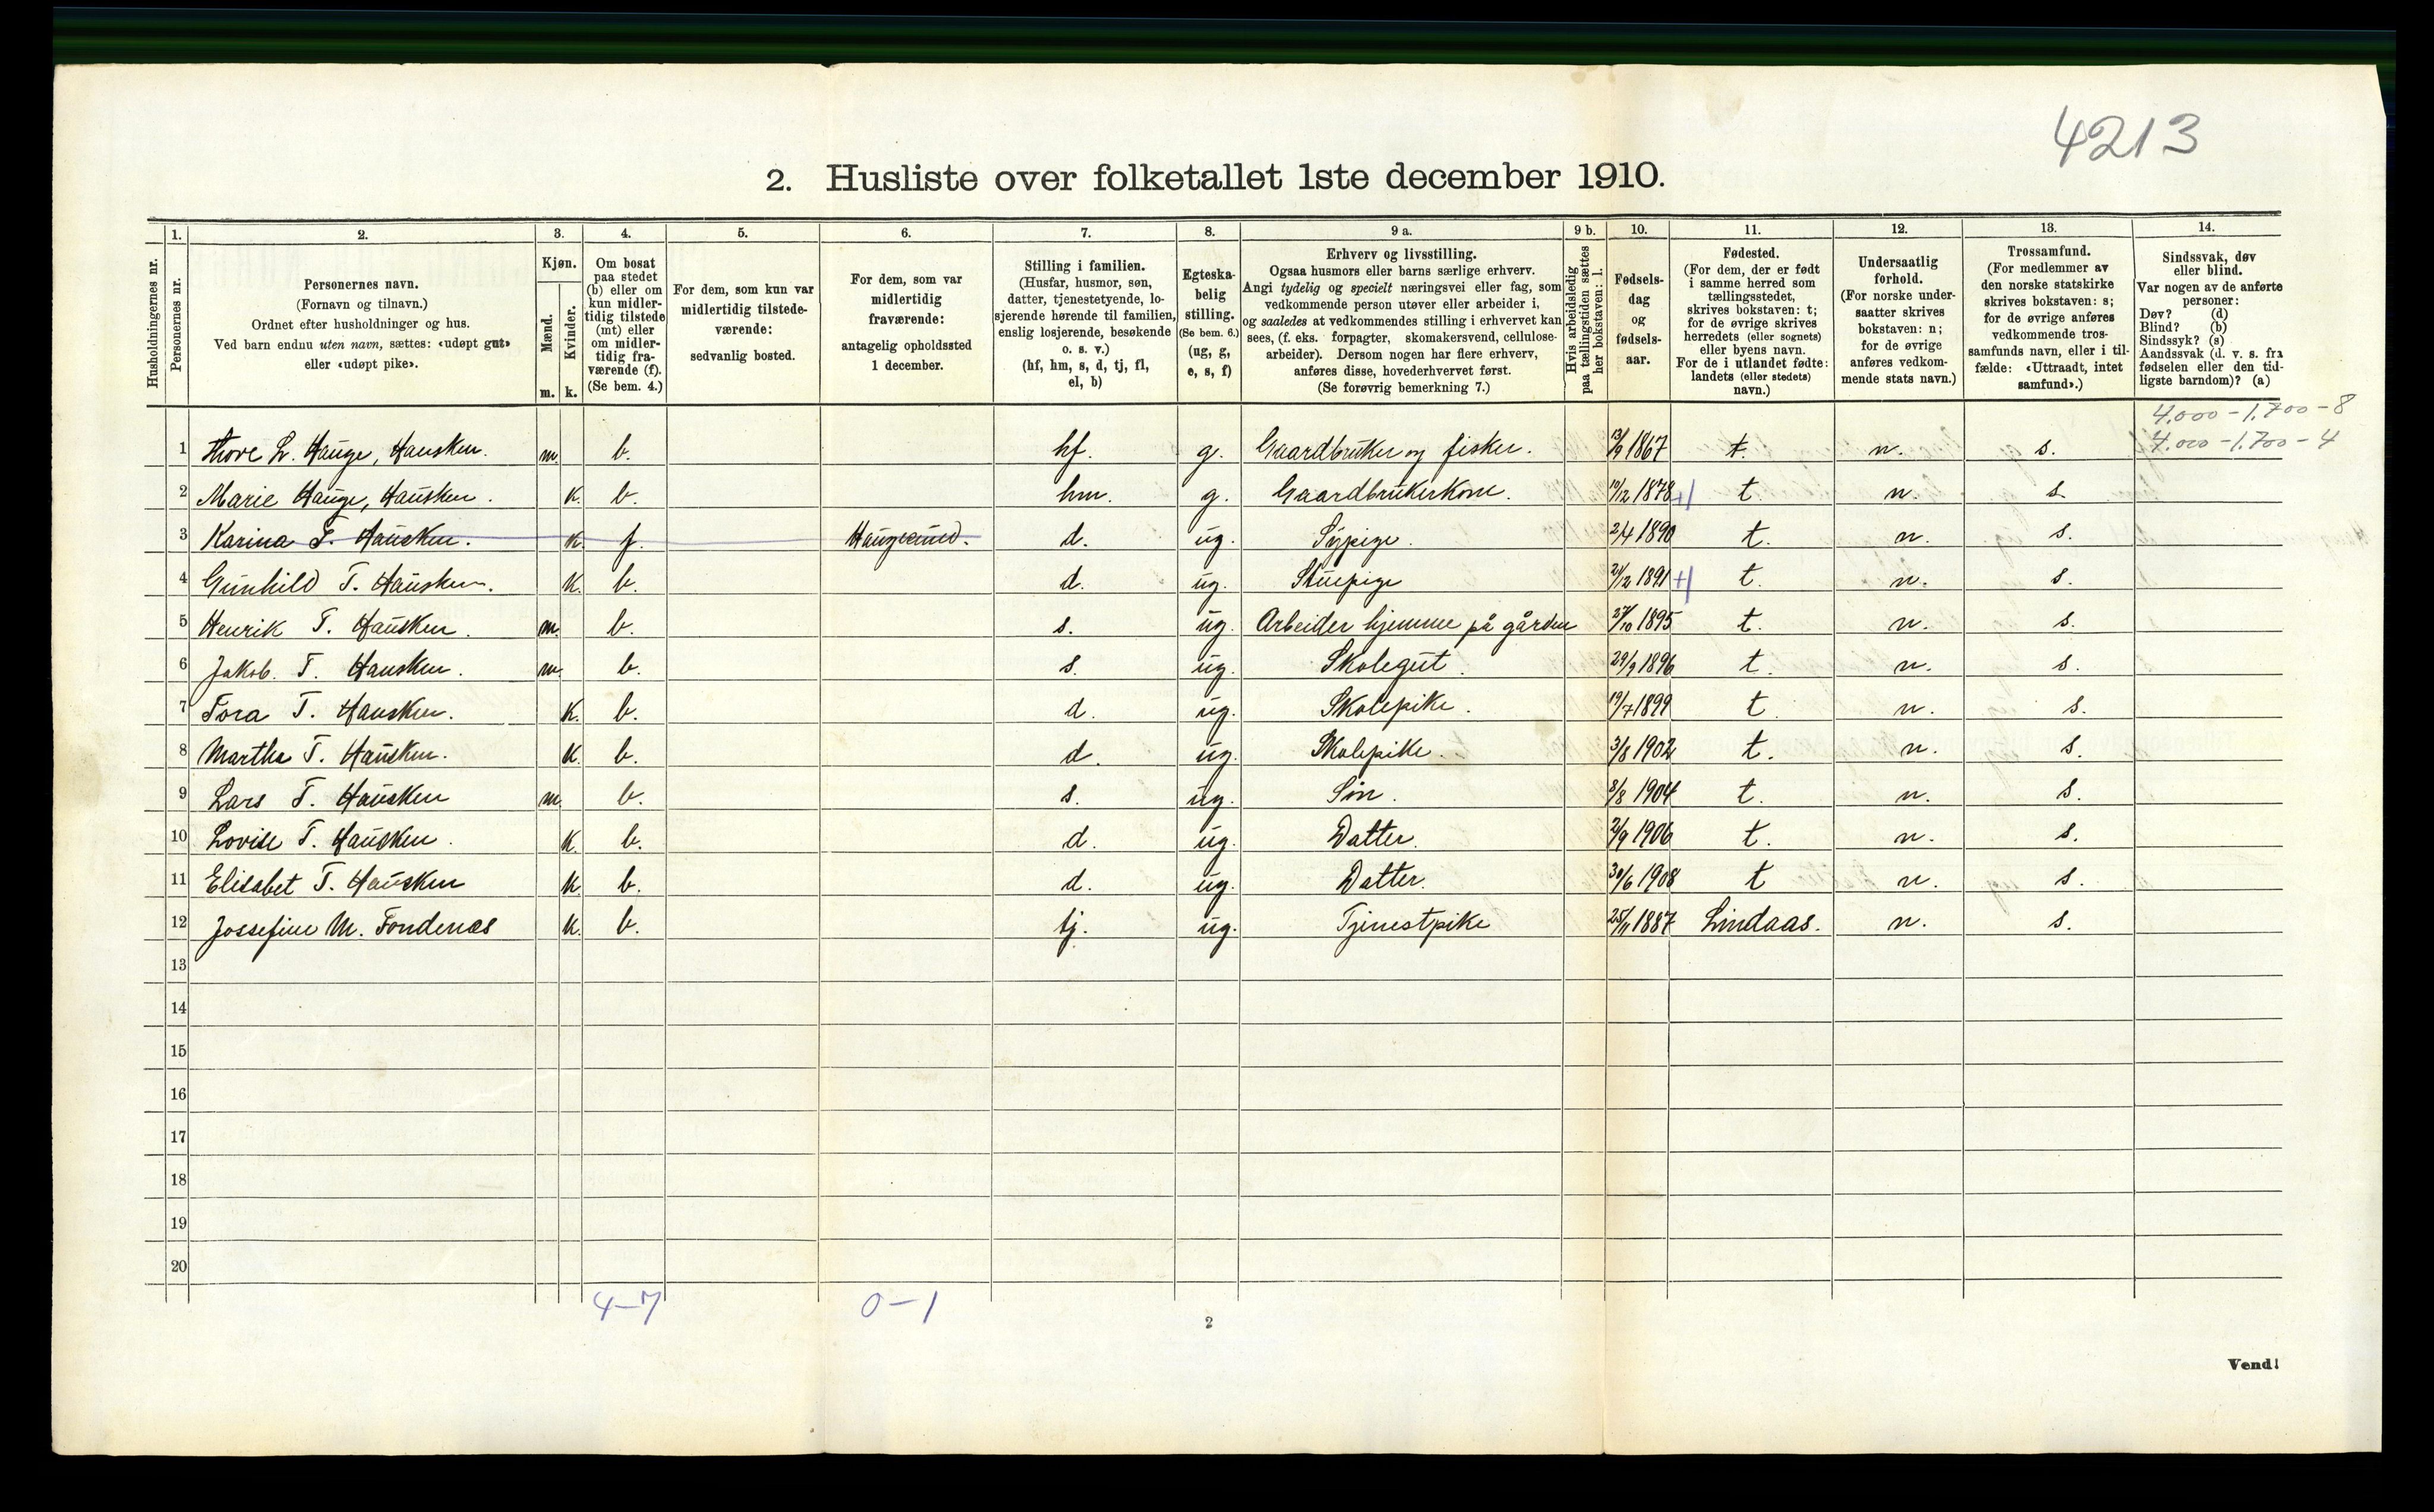 4213
2. Husliste over folketallet 1ste december 1910.
Husholdningernes nr.
1. Personernes nr.
2. Personernes navn.
(Fornavn og tilnavn.)
Ordnet efter husholdninger og hus.
Ved barn endnu uten navn, sættes: «udøpt gut»
eller «udøpt pike».
3. Kjøn.
Mænd. Kvinder.
m. k.
4. Om bosat
paa stedet
(b) eller om
kun midler-
tidig tilstede
(mt) eller
om midler-
tidig fra-
værende (f).
(Se bem. 4.)
5. For dem, som kun var
midlertidig tilstede-
værende:
sedvanlig bosted.
6. For dem, som var
midlertidig
fraværende:
antagelig opholdssted
1 december.
7. Stilling i familien.
(Husfar, husmor, søn,
datter, tjenestetyende, lo-
sjerende hørende til familien,
enslig losjerende, besøkende
o. s. v.)
(hf, hm, s, d, tj, fl,
el, b)
8. Egteska-
belig
stilling.
(Se bem. 6.)
(ug, g,
e, s, f)
9 a. Erhverv og livsstilling.
Ogsaa husmors eller barns særlige erhverv.
Angi tydelig og specielt næringsvei eller fag, som
vedkommende person utøver eller arbeider i,
og saaledes at vedkommendes stilling i erhvervet kan
sees, (f. eks. forpagter, skomakersvend, cellulose-
arbeider). Dersom nogen har flere erhverv,
anføres disse, hovederhvervet først.
(Se forøvrig bemerkning 7.)
9 b. Hvis arbeidsledig
paa tællingstiden sættes
her bokstaven: l.
10. Fødsels-
dag
og
fødsels-
aar.
11. Fødested.
(For dem, der er født
i samme herred som
tællingsstedet,
skrives bokstaven: t;
for de øvrige skrives
herredets (eller sognets)
eller byens navn.
For de i utlandet fødte:
landets (eller stedets)
navn.)
12. Undersaatlig
forhold.
(For norske under-
saatter skrives
bokstaven: n;
for de øvrige
anføres vedkom-
mende stats navn.)
13. Trossamfund.
(For medlemmer av
den norske statskirke
skrives bokstaven: s;
for de øvrige anføres
vedkommende tros-
samfunds navn, eller i til-
fælde: «Uttraadt, intet
samfund».)
14. Sindssvak, døv
eller blind.
Var nogen av de anførte
personer:
Døv? (d)
Blind? (b)
Sindssyk? (s)
Aandssvak (d. v. s. fra
fødselen eller den tid-
ligste barndom)? (a)
4.000 - 1.700 - 8
4.000 - 1.700 - 4
1 Thore L. Hauge, Hausken. m. b. hf. g. Gaardbruker og fisker. 13/9 1867 t. n. s.
2 Marie Hauge, Hausken. k. b. hm. g. Gaardbrukerkone. 10/12 1878 t n. s.
3 Karina T. Hausken. k. f. Haugesund. d. ug. Sypige. 2/4 1890 t. n. s.
4 Gunhild T. Hausken. k. b. d. ug. Stuepige 21/2 1891 t. n. s.
5 Henrik T. Hausken. m. b. s. ug. Arbeider hjemme på gården 27/10 1895 t. n. s.
6 Jakob. T. Hausken. m. b. s. ug. Skolegut. 29/9 1896 t. n. s.
7 Tora T. Hausken. k. b. d. ug. Skolepike. 19/7 1899 t. n. s.
8 Martha T. Hausken. k. b. d. ug. Skolepike. 3/8 1902 t. n. s.
9 Lars T. Hausken m. b. s. ug. Søn. 8/8 1904 t. n. s.
10 Lovise T. Hausken. k. b. d. ug. Datter. 2/9 1906 t. n. s.
11 Elisabet T. Hausken k. b. d. ug. Datter. 30/6 1908 t n. s.
12 Jossefine M. Fondenæs k. b. tj. ug. Tjinestpike 25/11 1887 Lindaas. n. s.
13
14
15
16
17
18
19
20
4-7 0-1
2
Vend!